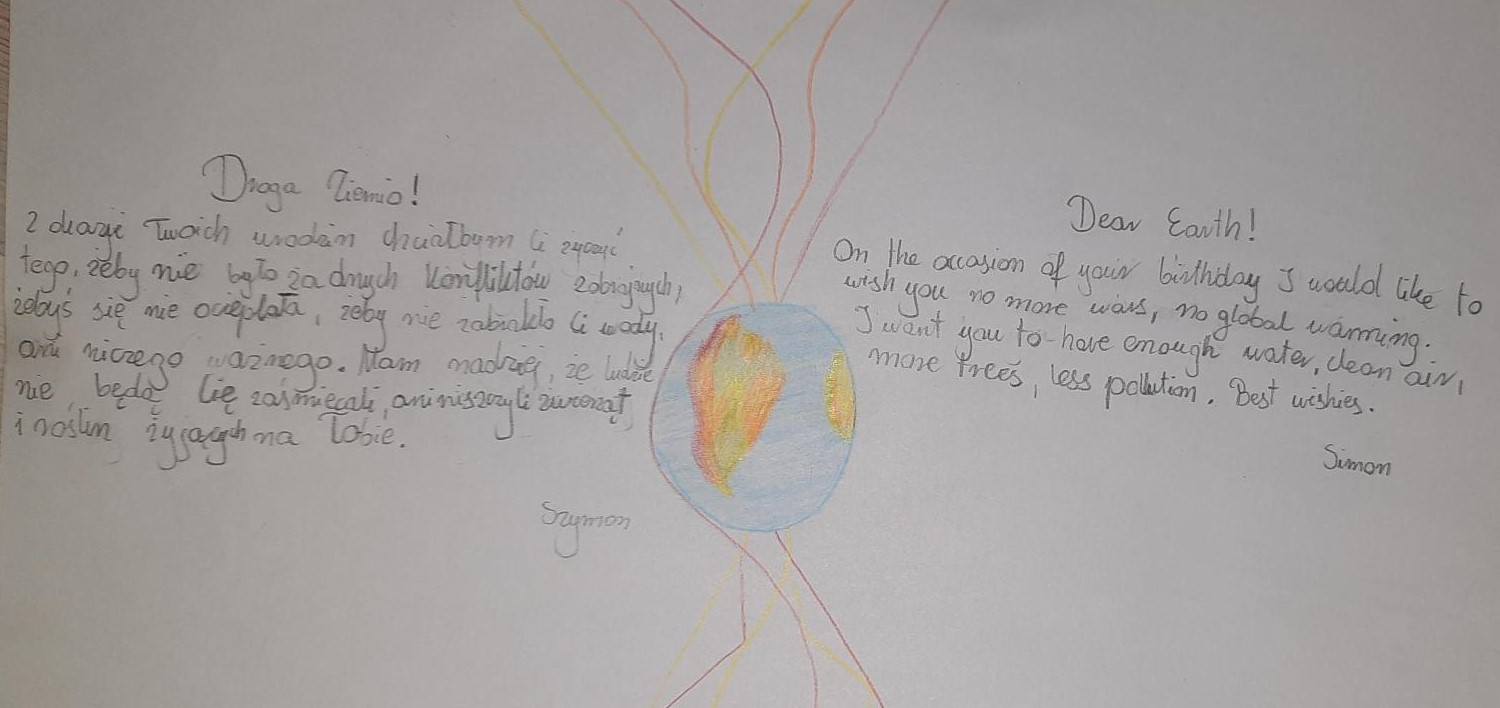 Droga Ziemio!
Z okazji Twoich urodzin chciałbym Ci życzyć
tego, żeby nie było żadnych konfliktów zbrojnych,
żebyś się nie ocieplała, żeby nie zabrakło Ci wody,
ani niczego ważnego. Mam nadzieję, że ludzie
nie będą Cię zaśmiecali, ani niszczyli zwierząt
i roślin żyjących na Tobie.
Szymon
Dear Earth!
On the occasion of your birthday I would like to
wish you no more wars, no global warming.
I want you to have enough water, clean air,
more trees, less pollution. Best wishies.
Simon